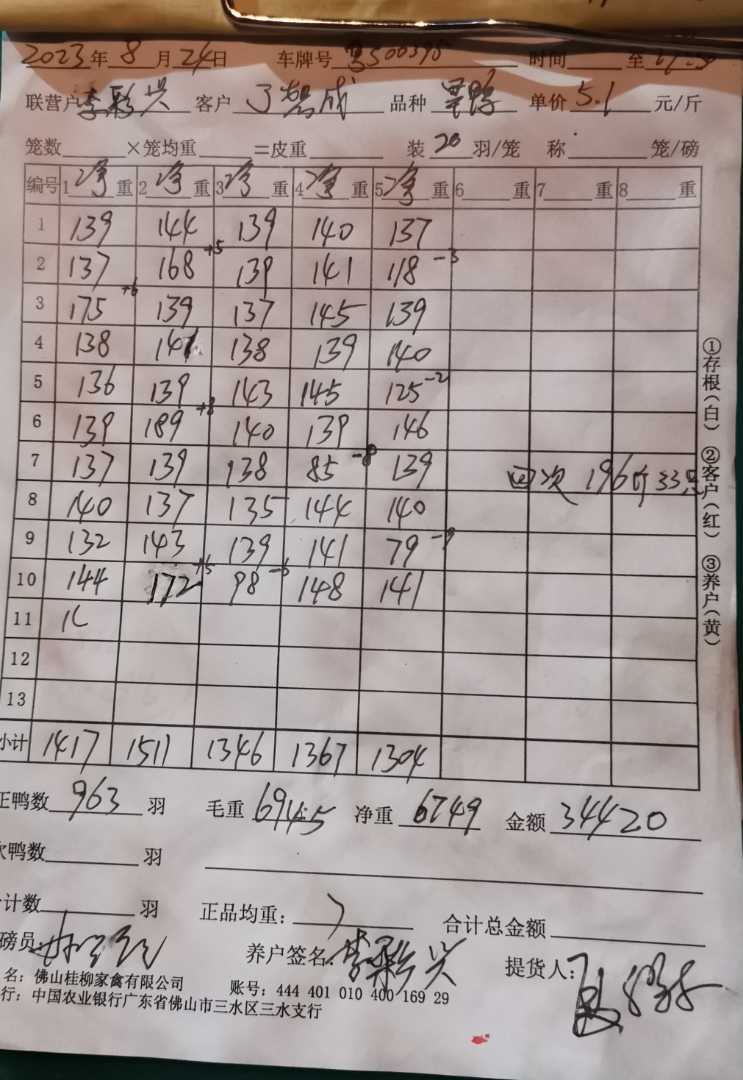 2023年 8 月 24日 车牌号 粤S00395 时间 至
联营户 李彩兴 客户 品种 单价 5.1 元/斤
笼数 ×笼均重 =皮重 装 20 羽/笼 称 笼/磅
编号 1 净 重 2 净 重 3 净 重 4 净 重 5 净 重 6 重 7 重 8 重
1 139 144 139 140 137
2 137 168 +5 139 141 118 -3
3 175 +6 139 137 145 139
4 138 141 138 139 140
5 136 139 143 145 125 -2
6 139 189 +8 140 139 146
7 137 139 138 85 -8 139 四次 196斤 33只
8 140 137 135 144 140
9 132 143 139 141 79 -9
10 144 172 +5 98 -6 148 141
11
12
13
小计 1417 1511 1346 1367 1304
正鸭数 963 羽 毛重 6945 净重 6749 金额 34420
次鸭数 羽
合计数 羽 正品均重: 7 合计总金额
磅员: 养户签名: 李彩兴 提货人:
名: 佛山桂柳家禽有限公司 账号: 444 401 010 400 169 29
行: 中国农业银行广东省佛山市三水区三水支行
①存根(白) ②客户(红) ③养户(黄)